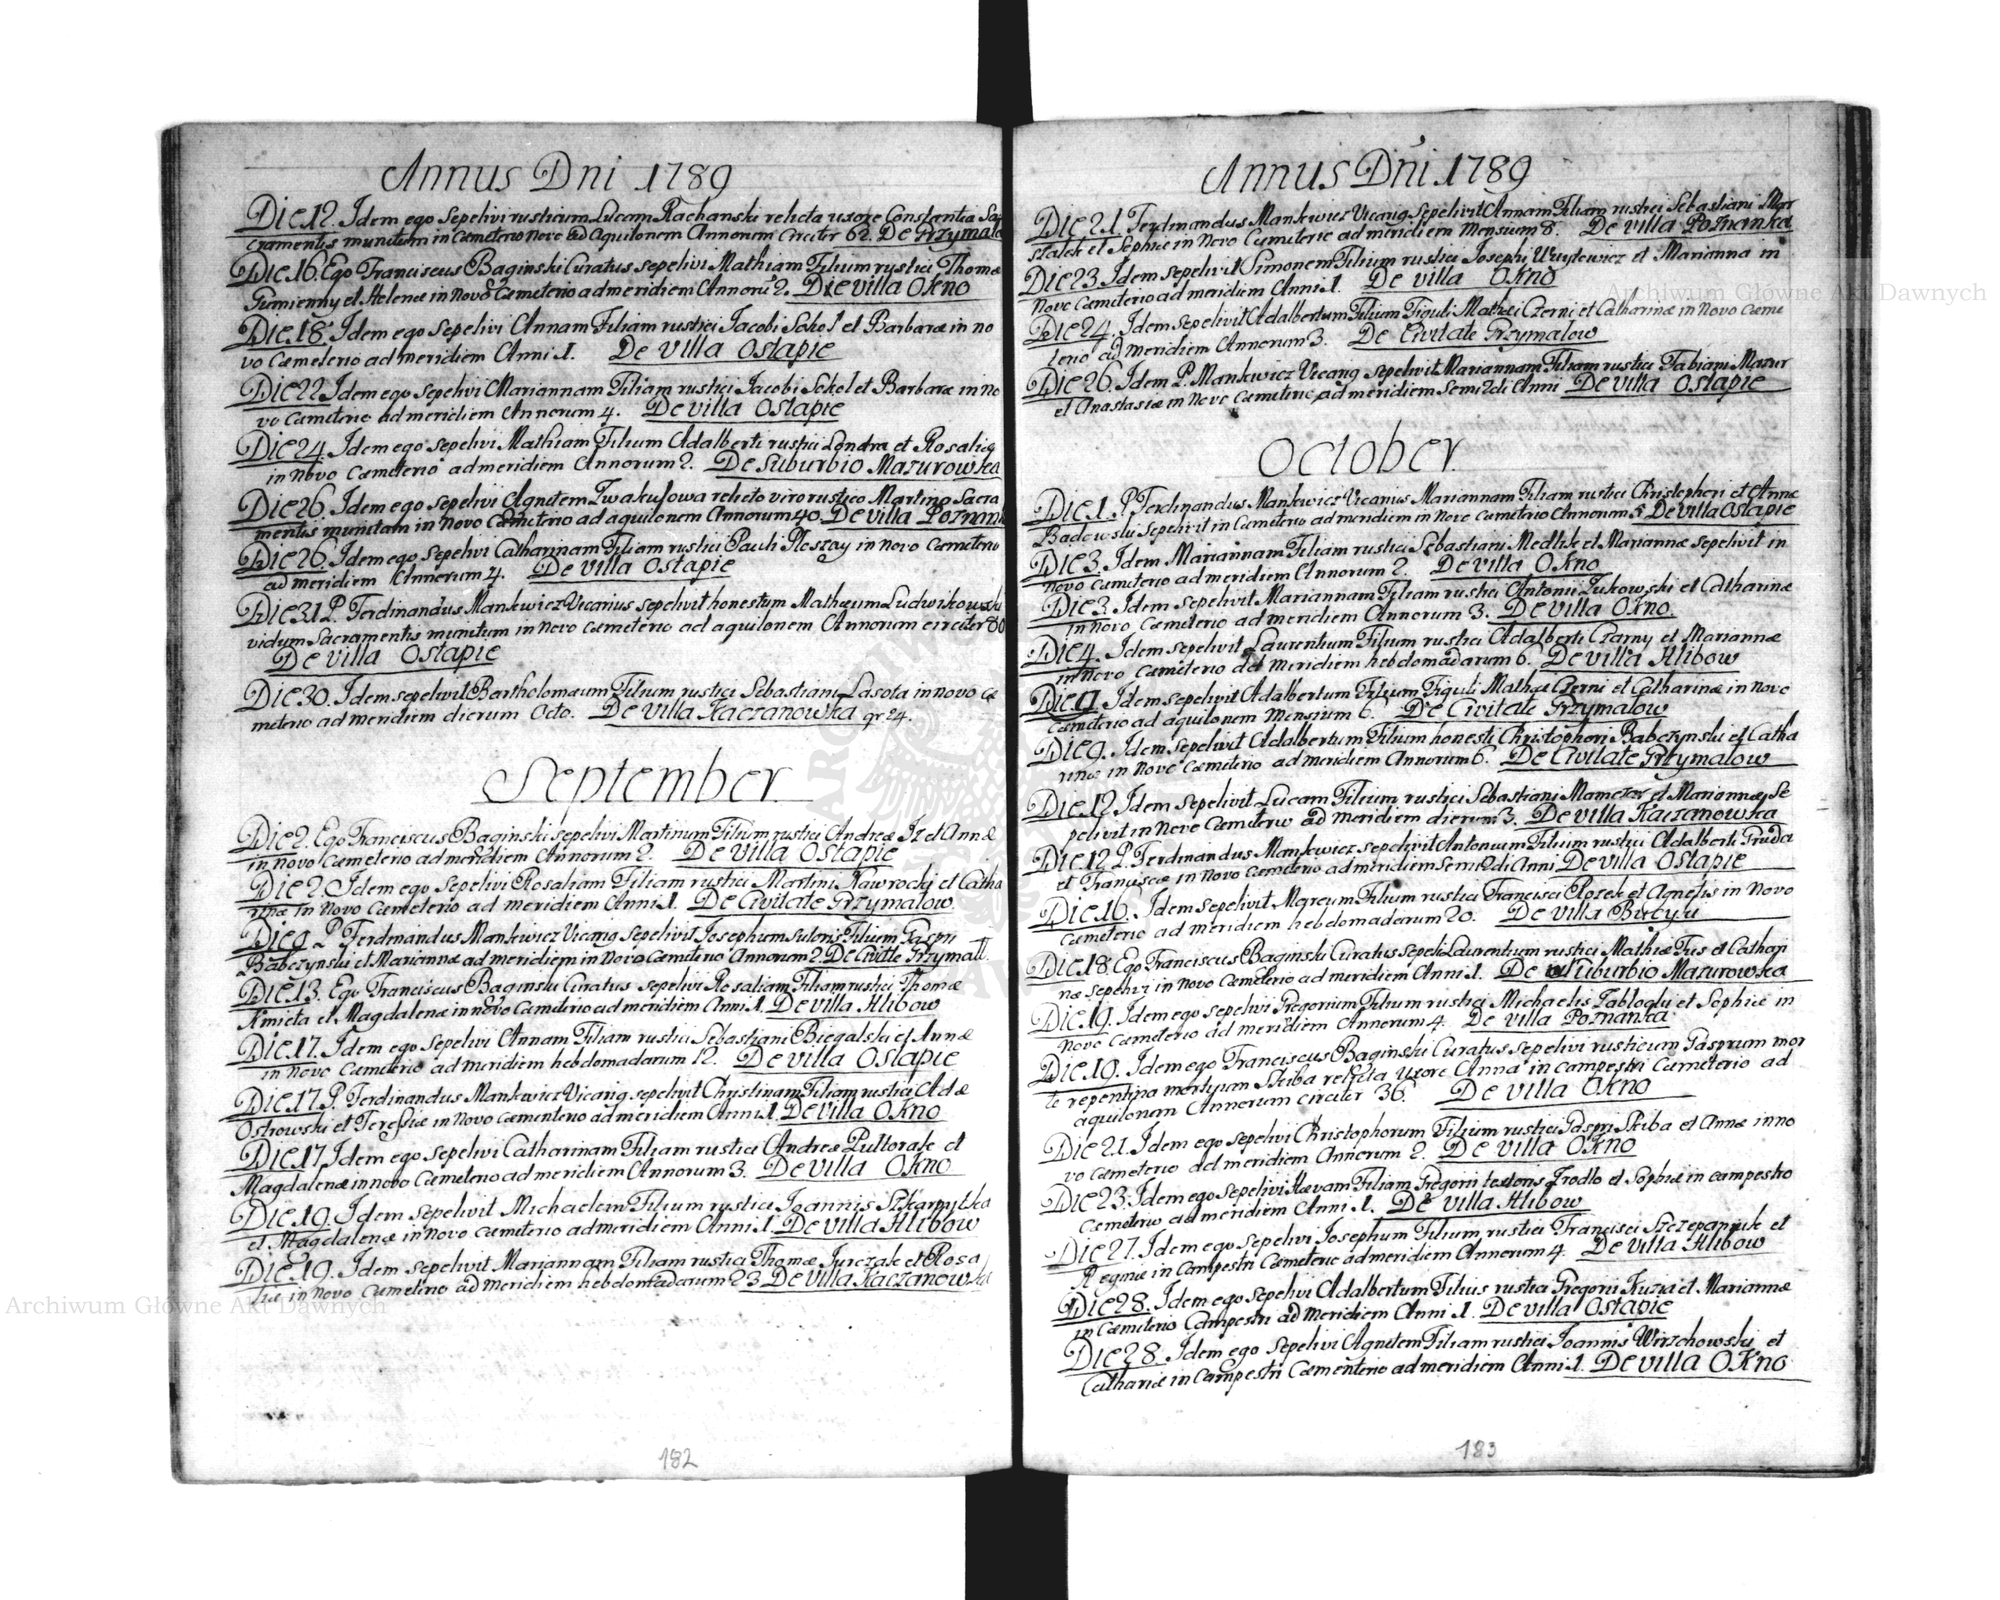 Annus Dni 1789
Die 12. Idem ego Sepelivi rusticum Lucam Rachanski relicta uxore Constantia Sa
cramentis munitum in Cæmeterio Novo ad Aquilonem Annorum Circiter 62. De Grzymalo
Die 16. Ego Franciscus Baginski Curatus sepelivi Mathiam Filium rustici Thomæ
Gumienny et Helenæ in Novo Cæmeterio ad meridiem Annorū 2. De villa Okno
Die 18. Idem ego Sepelivi Annam Filiam rustici Jacobi Sokol et Barbaræ in no
vo Cæmeterio ad meridiem Anni 1. De Villa Ostapie
Die 22 Idem ego Sepelivi Mariannam Filiam rustici Jacobi Sokol et Barbaræ in no
vo Cæmeterio ad meridiem Annorum 4. De villa Ostapie
Die 24. Idem ego Sepelivi Mathiam Filium Adalberti rustici Londra et Rosaliæ
in Novo Cæmeterio ad meridiem Annorum 2. De Suburbio Mazurowka
Die 26. Idem ego Sepelivi Agnetem relicto viro rustico Martino Sacra
mentis munitam in Novo Cæmeterio ad aquilonem Annorum 40. De villa Poznank
Die 26. Idem ego Sepelivi Catharinam Filiam rustici Pauli Ploszay in novo Cæmeterio
ad meridiem Annorum 4. De villa Ostapie
Die 31 P. Ferdinandus Mankwicz Vicarius sepelivit honestum Mathæum Ludwikowski
viduum Sacramentis munitum in Novo Cæmeterio ad aquilonem Annorum circiter 80
De villa Ostapie
Die 30. Idem sepelivit Bartholomæum Filium rustici Sebastiani Lasota in novo Cæ
meterio ad meridiem dierum Octo. De Villa Kaczanowka gr 24.
September
Die 2. Ego Franciscus Baginski sepelivi Martinum Filium rustici Andreæ et Annæ
in Novo Cæmeterio ad meridiem Annorum 2. De villa Ostapie
Die 2. Idem ego Sepelivi Rosaliam Filiam rustici Martini Nawrocki et Catha
rinæ in Novo Cæmeterio ad meridiem Anni 1. De Civitate Grzymalow
Die 9. P. Ferdinandus Mankwicz Vicarig sepelivit Josephum sutoris Filium Gaspri
Babczynski et Mariannæ ad meridiem in Novo Cæmeterio Annorum 2. De Civitte Grzymall.
Die 13. Ego Franciscus Baginski Curatus sepelivi Rosaliam Filiam rustici Thomæ
Kmieta et Magdalenæ in novo Cæmiterio ad meridiem Anni 1. De villa Hlibow
Die 17. Idem ego Sepelivi Annam Filiam rustici Sebastiani Biegalski et Annæ
in Novo Cæmeterio ad meridiem hebdomadarum 12. De villa Ostapie
Die 17. P. Ferdinandus Mankwicz Vicarig sepelivit Christinam Filiam rustici Adæ
Ostrowski et Teressiæ in Novo Cæmenterio ad meridiem Anni 1. De villa Okno
Die 17 Idem ego sepelivi Catharinam Filiam rustici Andreæ Pultorak et
Magdalenæ in novo Cæmeterio ad meridiem Annorum 3. De villa Okno
Die 19. Idem sepelivit Michaelem Filium rustici Joannis Szkarnytka
et Magdalenæ in Novo Cæmeterio ad meridiem Anni 1. De villa Hlibow
Die 19. Idem Sepelivit Mariannam Filiam rustici Thomæ Jurczak et Rosa
liæ in Novo Cæmetirio ad meridiem hebdomadarum 23 De villa Kaczanowka
182
Annus Dñi 1789
Die 21. Ferdinandus Mankwicz Vicarig Sepelivit Annam Filiam rustici Sebastiani Mar
szalek et Sophiæ in Novo Cæmeterio ad meridiem Mensium 8. De villa Poznanka
Die 23. Idem Sepelivit Simonem Filium rustici Josephi et Marianna in
Novo Cæmeterio ad meridiem Anni 1. De villa Okno
Die 24. Idem Sepelivit Adalbertum Filium Figuli Mathæi Czerni et Catharinæ in Novo Cæme
terio ad meridiem Annorum 3. De Civitate Grzymalow
Die 26. Idem P. Mankwicz Vicarig Sepelivit Mariannam Filiam rustici Fabiani Mazur
et Anastasiæ in Novo Cæmiterio ad meridiem Semi 2di Anni De villa Ostapie
October.
Die 1. P. Ferdinandus Mankwicz Vicarius Mariannam Filiam rustici Christopheri et Annæ
Badowski Sepelivit in Cæmeterio ad meridiem in Novo Cæmeterio Annorum 5 De villa Ostapie
Die 3. Idem Mariannam Filiam rustici Sebastiani Medlik et Mariannæ sepelivit in
Novo Cæmeterio ad meridiem Annorum 2. De villa Okno
Die 3 Idem Sepelivit Mariannam Filiam rustici Antonii Zukowski et Catharinæ
in Novo Cæmeterio ad meridiem Annorum 3. De villa Okno.
Die 4. Idem sepelivit Laurentium Filium rustici Adalberti Czarny et Mariannæ
in Novo Cæmeterio ad Meridiem hebdomadarum 6. De villa Hlibow
Die Idem sepelivit Adalbertum Filium Figuli Mathæi Czerni et Catharinæ in Novo
Cæmeterio ad aquilonem Mensium 6. De Civitate Grzymalow
Die 9. Idem Sepelivit Adalbertum Filium honesti Christophori Babczynski et Catha
rinæ in Novo Cæmeterio ad meridiem Annorum 6. De Civitate Grzymalow
Die 12 Idem Sepelivit Lucam Filium rustici Sebastiani et Mariannæ Se
pelivit in Novo Cæmeterio ad meridiem dierum 3. De Villa Kaczanowka
Die 12 P. Ferdinandus Mankwicz sepelivit Antonium Filium rustici Adalberti Gruda
et Franciscæ in Novo Cæmeterio ad meridiem Semi 2di Anni De villa Ostapie
Die 16. Idem Sepelivit Marcum Filium rustici Francisci Rozek et Agnetis in Novo
Cæmeterio ad meridiem hebdomadarum 20. De villa Bucyki
Die 18. Ego Franciscus Baginski Curatus Sepeli Laurentium rustici Mathiæ Fus et Cathari
næ Sepelivi in Novo Cæmeterio ad meridiem Anni 1. De Suburbio Mazurowka
Die 19. Idem ego sepelivi Gregorium Filium rustici Michaelis et Sophiæ in
Novo Cæmeterio ad meridiem Annorum 4. De villa Poznanka
Die 19. Idem ego Franciscus Baginski Curatus Sepelivi rusticum Gasprum mor
te repentina mortuum Skiba relicta Uxore Anna in campestri Cæmeterio ad
aquilonem Annorum Circiter 36. De villa Okno
Die 21. Idem ego Sepelivi Christophorum Filium rustici Gaspri Skiba et Annæ in no
vo Cæmeterio ad meridiem Annorum 2. De villa Okno
Die 23. Idem ego Sepelivi Hævam Filiam Gregorii textoris et Sophiæ in campestro
Cæmeterio ad meridiem Anni 1. De villa Hlibow
Die 27. Idem ego Sepelivi Josephum Filium rustici Francisci Szczepaniuk et
Reginæ in Campestri Cæmeterio ad meridiem Annorum 4. De villa Hlibow
Die 28. Idem ego Sepelivi Adalbertum Filius rustici Gregorii Kuzia et Mariannæ
in Cæmiterio Campestri ad Meridiem Anni 1. De villa Ostapie
Die 28. Idem ego Sepelivi Agnetem Filiam rustici Joannis Wirzchowski et
Cathariæ in Campestri Cæmenterio ad meridiem Anni 1. De villa Okno
183
Archiwum Główne Akt Dawnych
Archiwum Główne Akt Dawnych